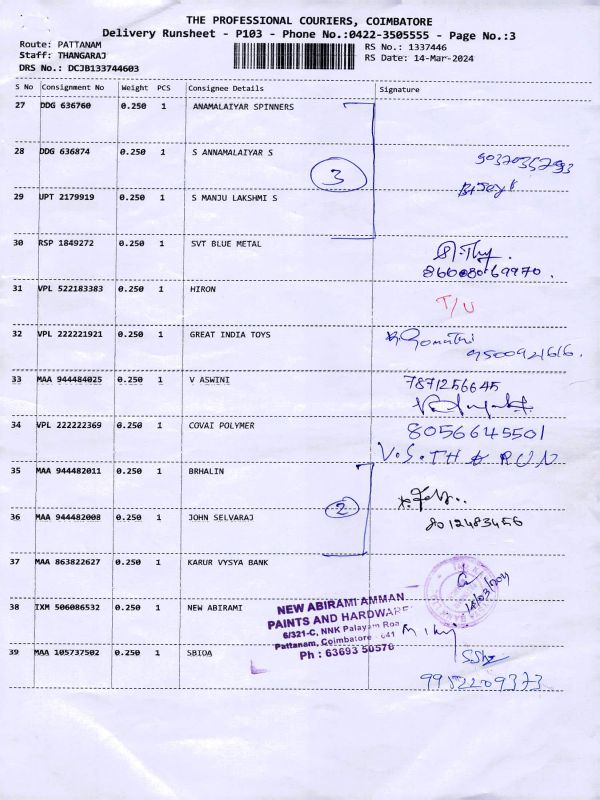 THE PROFESSIONAL COURIERS, COIMBATORE
Delivery Runsheet - P103 - Phone No.:0422-3505555 - Page No.:3
Route: PATTANAM RS No.: 1337446
Staff: THANGARAJ RS Date: 14-Mar-2024
DRS No.: DCJB133744603
S No Consignment No Weight PCS Consignee Details Signature
27 DDG 636760 0.250 1 ANAMALAIYAR SPINNERS
28 DDG 636874 0.250 1 S ANNAMALAIYAR S
3
29 UPT 2179919 0.250 1 S MANJU LAKSHMI S
30 RSP 1849272 0.250 1 SVT BLUE METAL
31 VPL 522183383 0.250 1 HIRON T/U
32 VPL 222221921 0.250 1 GREAT INDIA TOYS
9500921616.
33 MAA 944484025 0.250 1 V ASWINI 7871256645
34 VPL 222222369 0.250 1 COVAI POLYMER 8056645501
35 MAA 944482011 0.250 1 BRHALIN
2
36 MAA 944482008 0.250 1 JOHN SELVARAJ 8012483456
37 MAA 863822627 0.250 1 KARUR VYSYA BANK
38 IXM 506086532 0.250 1 NEW ABIRAMI
NEW ABIRAMI AMMAN
PAINTS AND HARDWARE
6/321-C, NNK Palayam Roa
Pattanam, Coimbatore 641
Ph : 63693 50576
39 MAA 105737502 0.250 1 SBIOA
9952209373